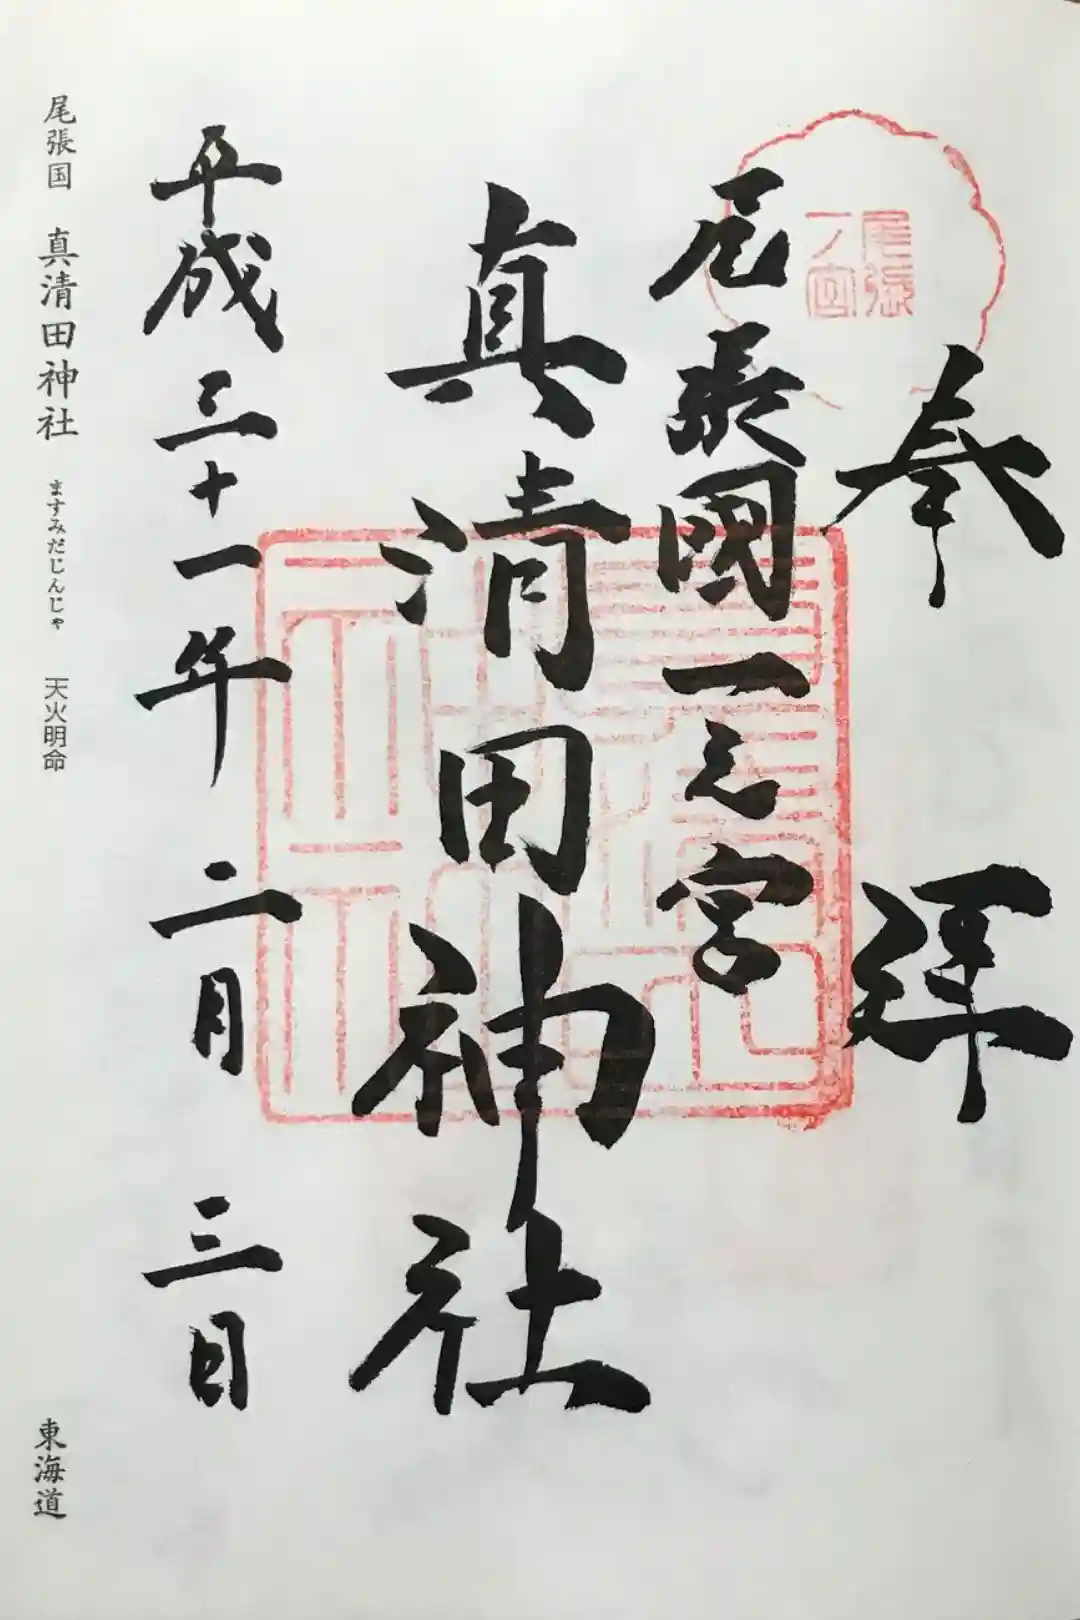 奉拝
尾張一ノ宮
尾張國一之宮
真清田神社
平成三十一年二月三日
尾張国 真清田神社 ますみだじんじゃ 天火明命
東海道